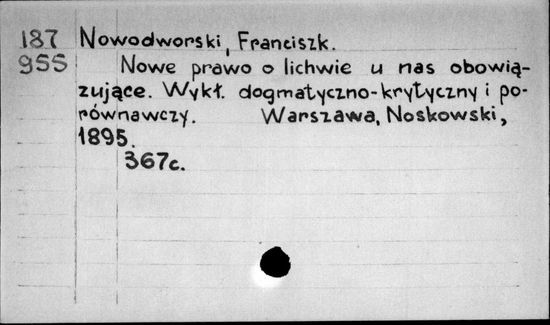 187 Nowodworski, Franciszk.
955 Nowe prawo o lichwie u nas obowią-
zujące. Wykł. dogmatyczno-krytyczny i po-
równawczy. Warszawa, Noskowski,
1895.
367c.